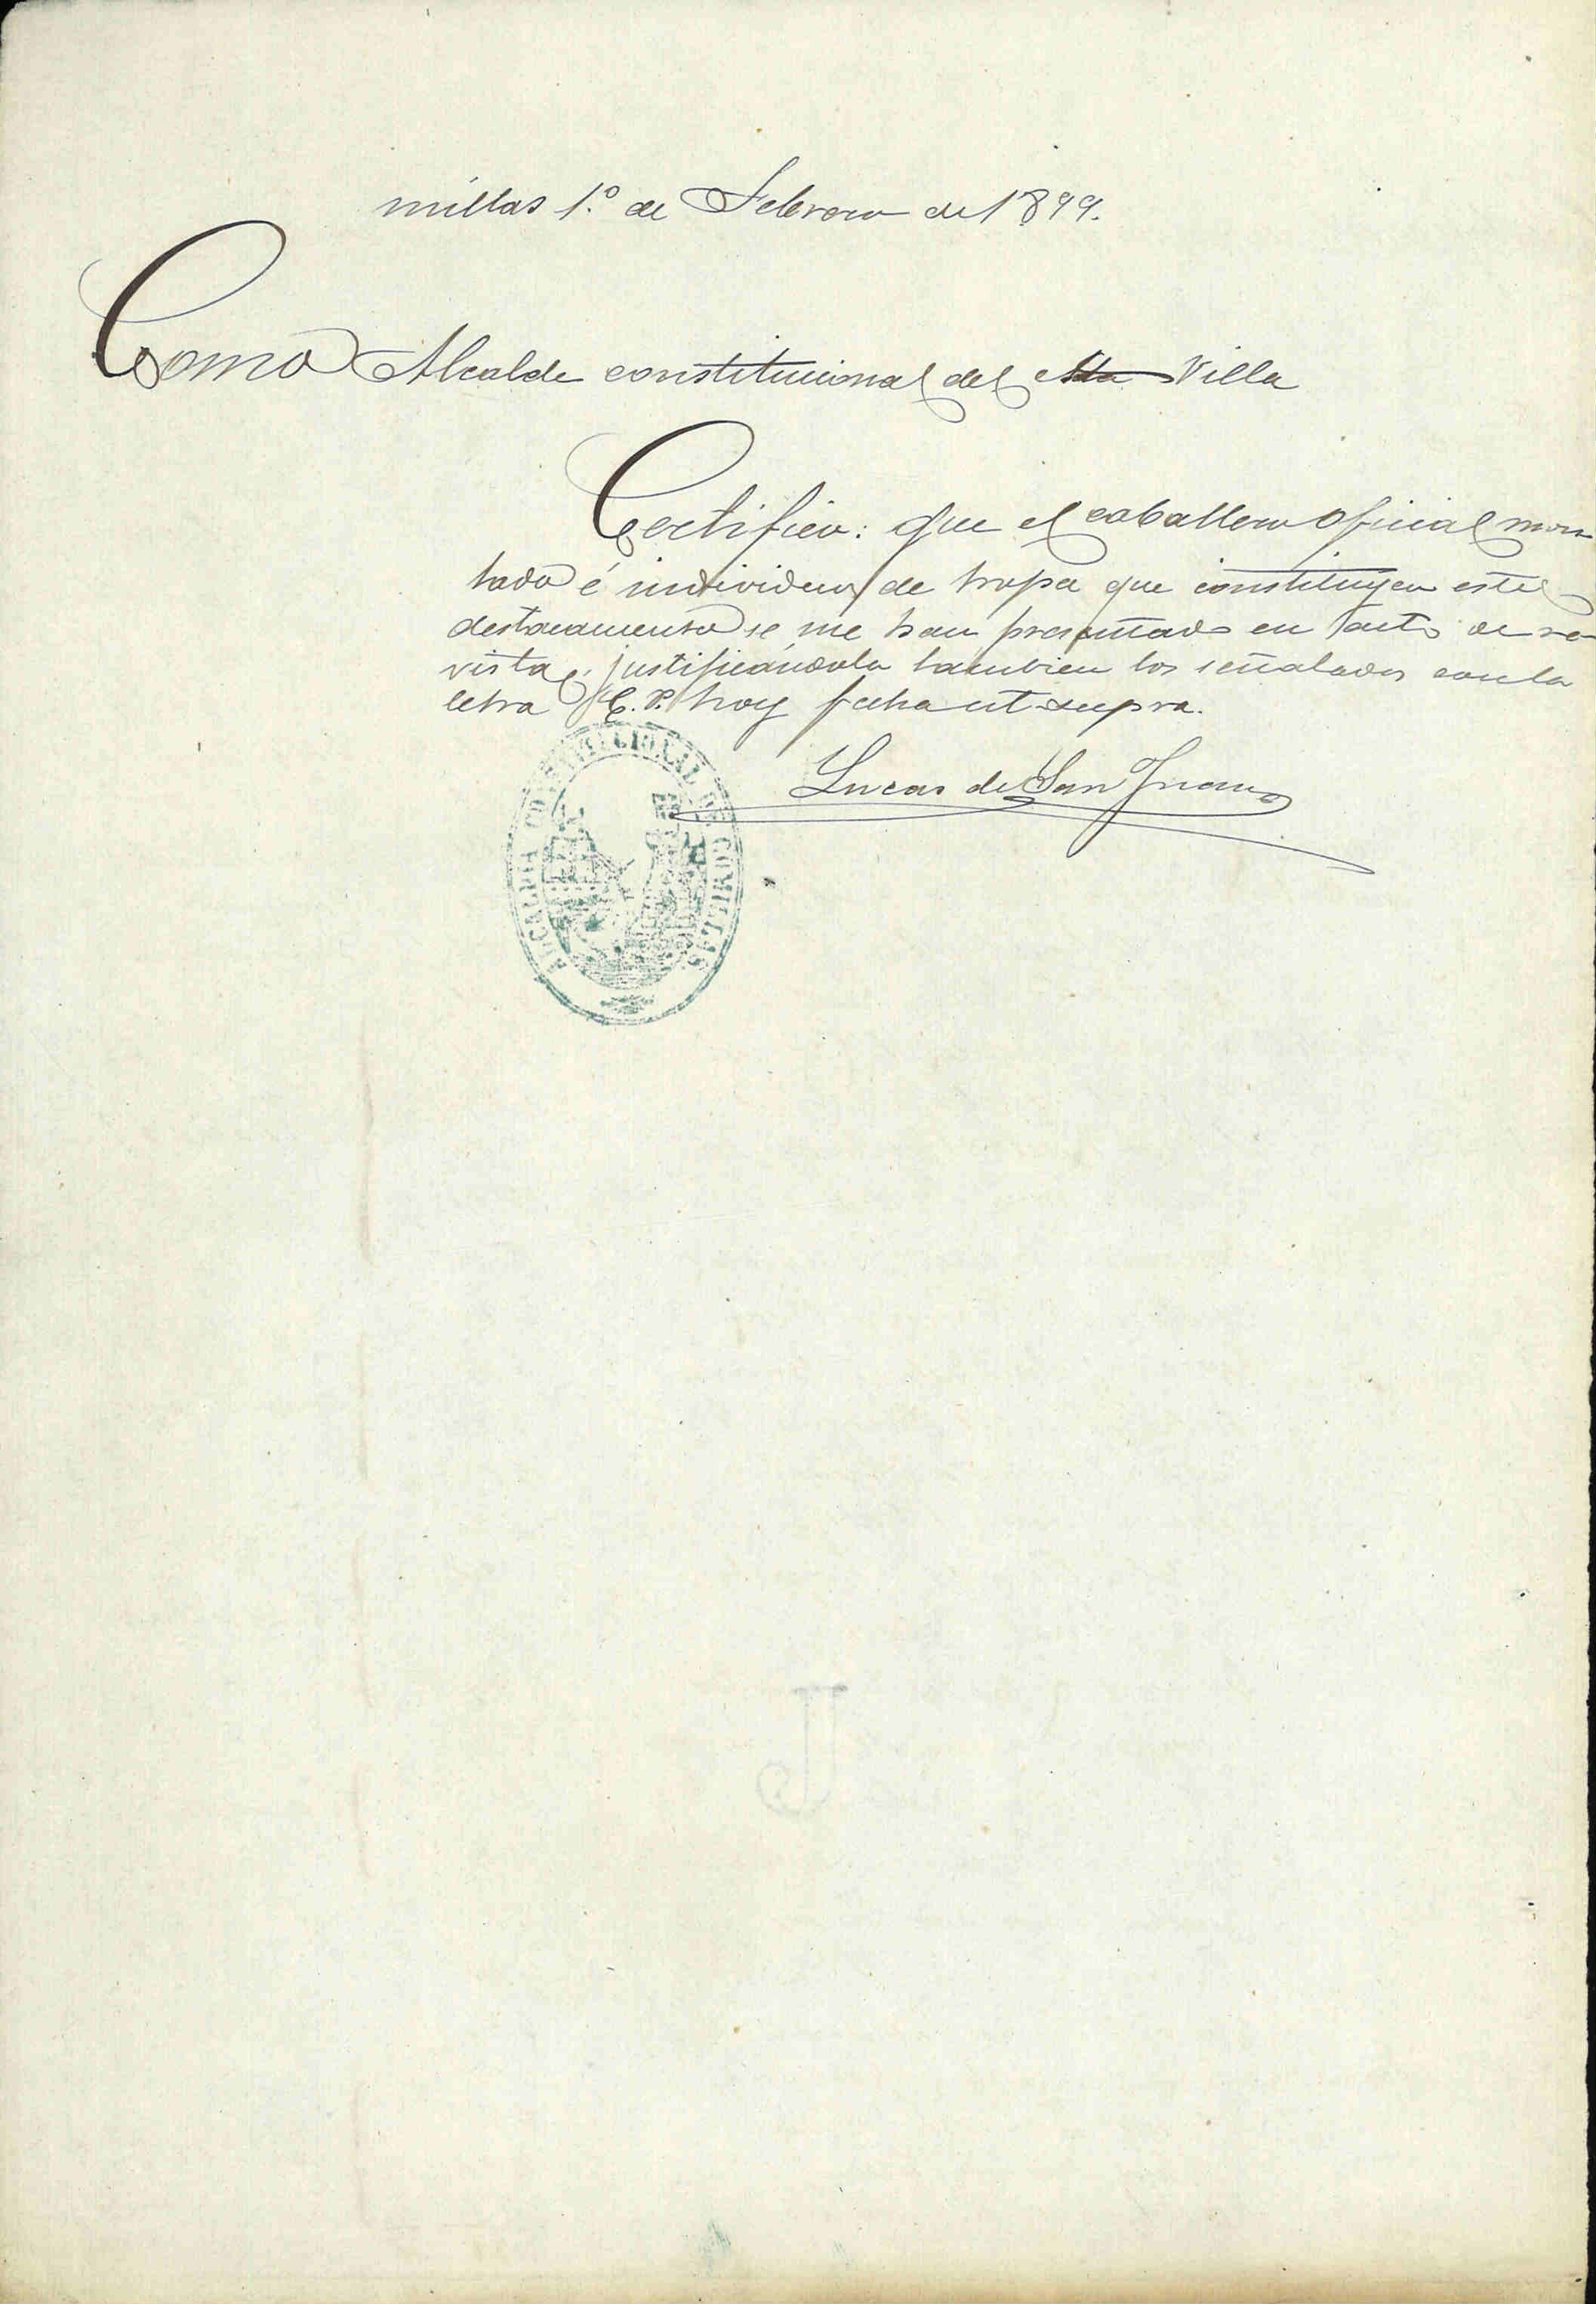 millas 1.º de Febrero de 1899.
Como Alcalde constitucional de esta Villa
Certifico: que el caballero oficial mon
tado é individuos de tropa que constituyen este
destacamento se me han presentado en acto de re
vista, justificándola tambien los señalados con la
letra C. P. hoy fecha ut supra.
Lucas de San Juan
ALCALDIA CONSTITUCIONAL DE
SIETE